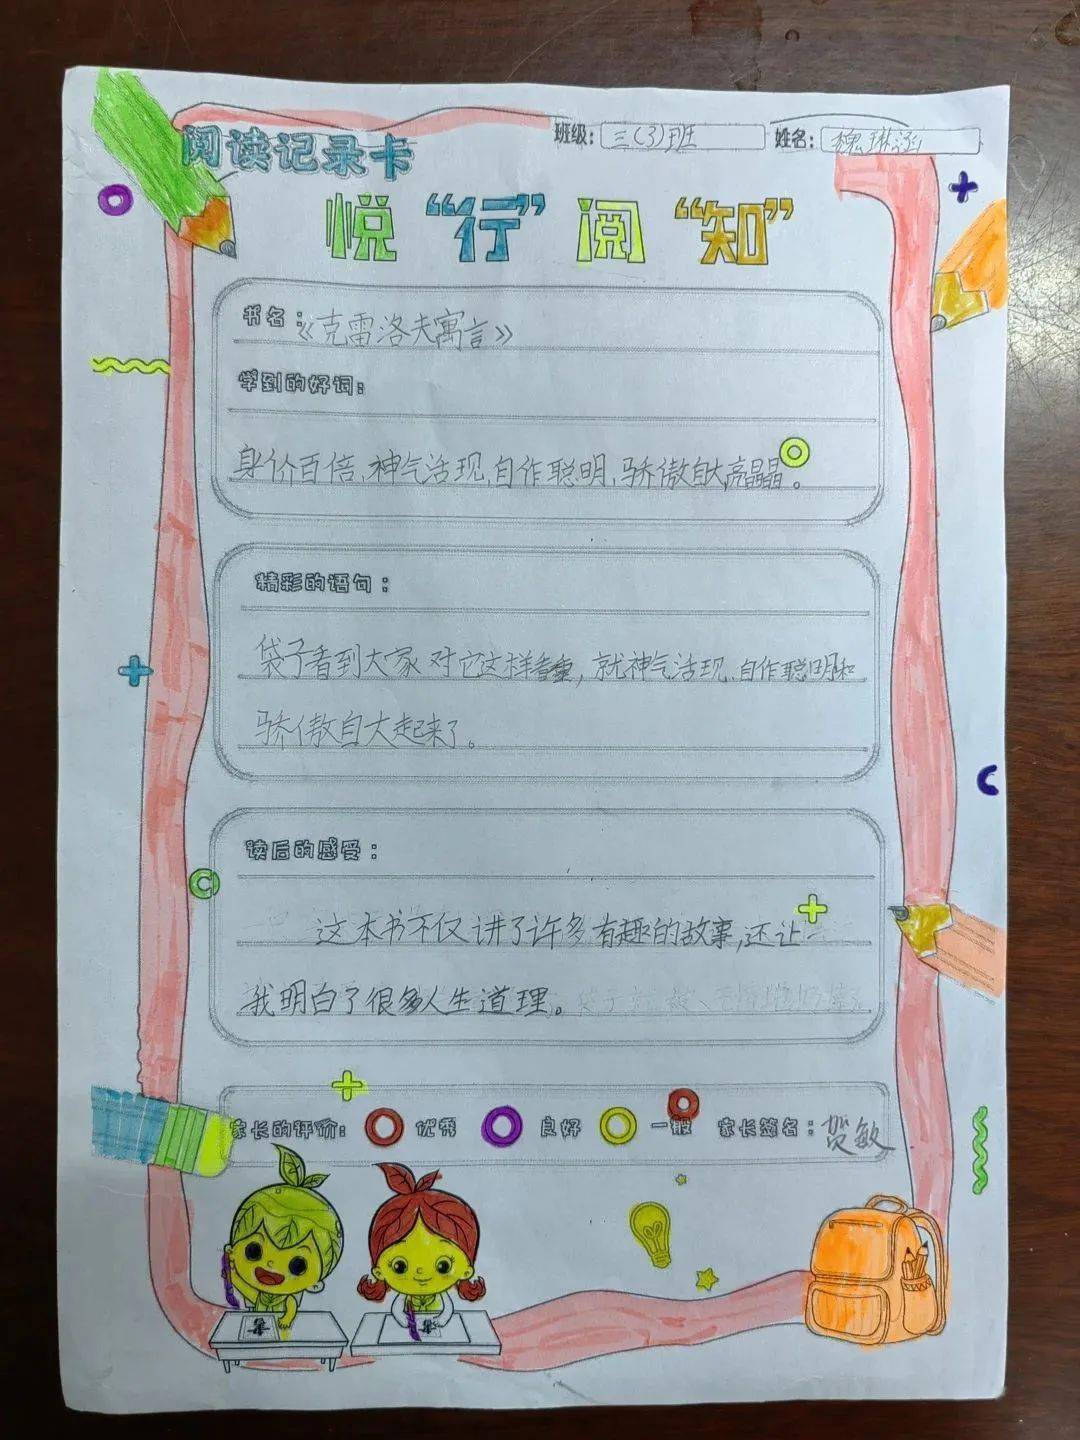 阅读记录卡
班级：三（3）班 姓名：魏琳涵
悦“行”阅“知”
书名：《克雷洛夫寓言》
学到的好词：
身价百倍、神气活现、自作聪明、骄傲自大、亮晶晶。
精彩的语句：
袋子看到大家对它这样看重，就神气活现、自作聪明和
骄傲自大起来了。
读后的感受：
这本书不仅讲了许多有趣的故事，还让
我明白了很多人生道理。
家长的评价： 优秀 良好 一般 家长签名：贺敏